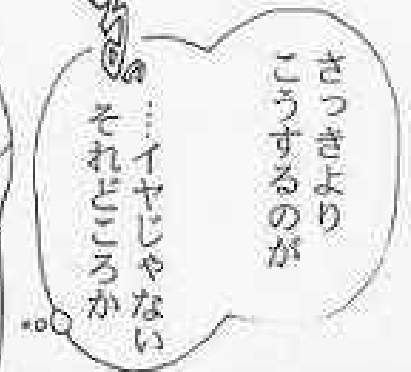 さっきより
こうするのが
……イヤじゃない
それどころか